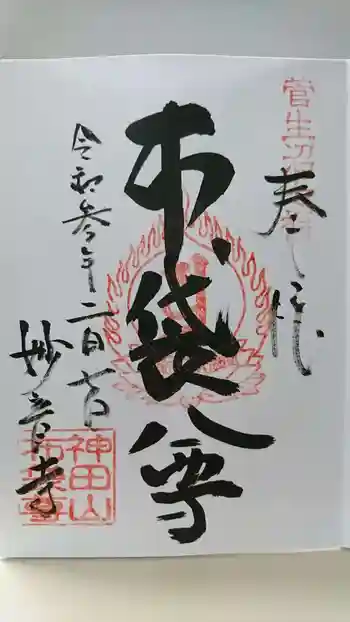 奉拝
布袋尊
令和参年二月七日
妙音寺
神田山
布袋尊